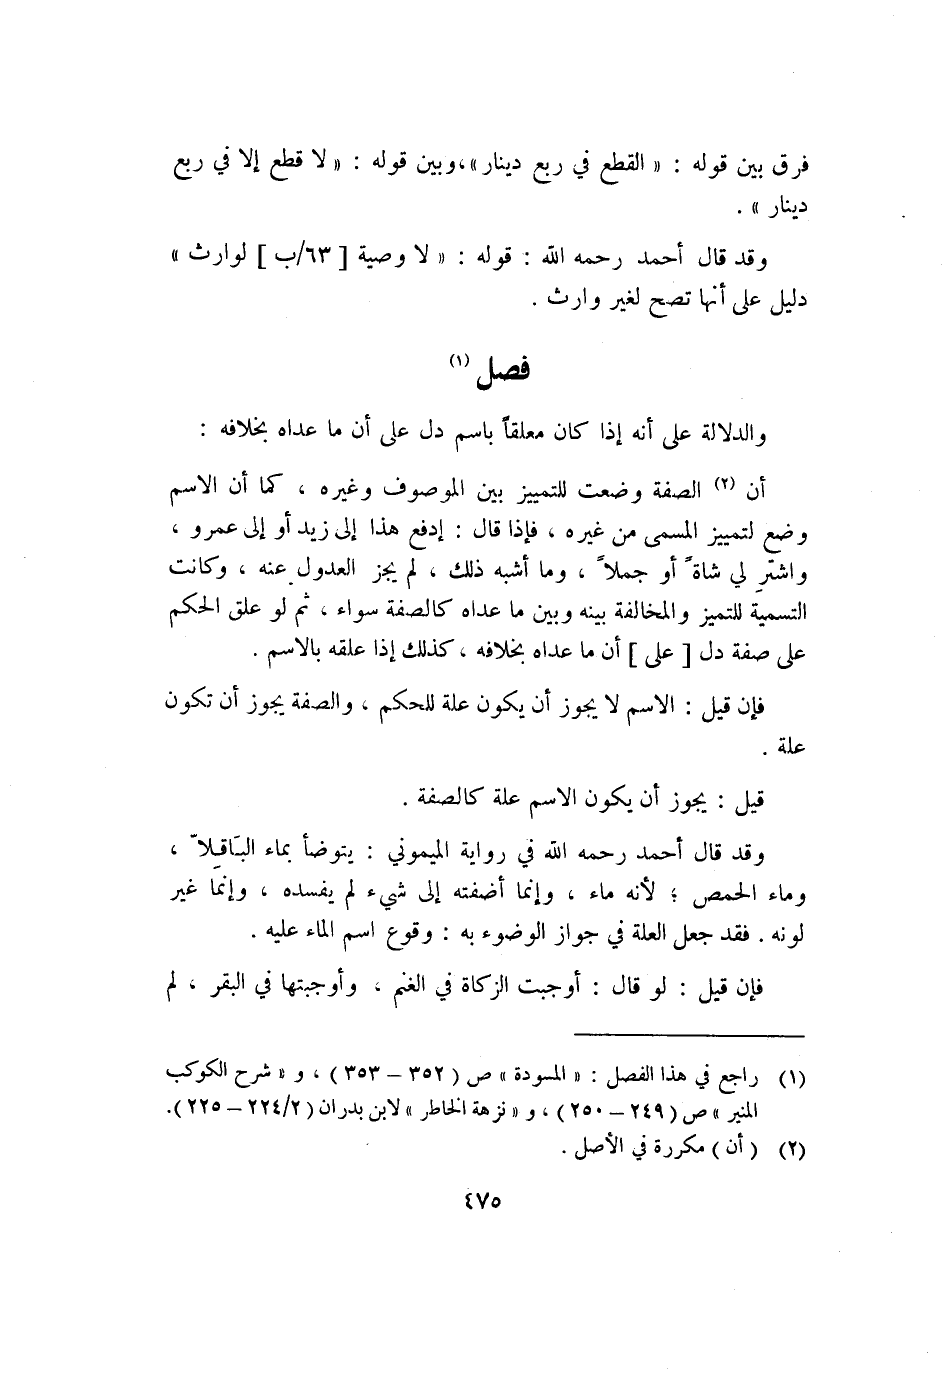 فرق بين قوله : « القطع في ربع دينار »،وبين قوله : « لا قطع إلا في ربع
دينار » .
وقد قال أحمد رحمه الله : قوله : « لا وصية [ ٦٣/ب ] لوارث »
دليل على أنها تصح لغير وارث .
فصل (١)
والدلالة على أنه إذا كان معلقاً باسم دل على أن ما عداه بخلافه :
أن (٢) الصفة وضعت للتمييز بين الموصوف وغيره ، كما أن الاسم
وضع لتمييز المسمى من غيره ، فإذا قال : إدفع هذا إلى زيد أو إلى عمرو ،
واشترِ لي شاةً أو جملاً ، وما أشبه ذلك ، لم يجز العدول عنه ، وكانت
التسمية للتميز والمخالفة بينه وبين ما عداه كالصفة سواء ، ثم لو علق الحكم
على صفة دل [ على ] أن ما عداه بخلافه ، كذلك إذا علقه بالاسم .
فإن قيل : الاسم لا يجوز أن يكون علة للحكم ، والصفة يجوز أن تكون
علة .
قيل : يجوز أن يكون الاسم علة كالصفة .
وقد قال أحمد رحمه الله في رواية الميموني : يتوضأ بماء البَاقِلاّ ،
وماء الحمص ؛ لأنه ماء ، وإنما أضفته إلى شيء لم يفسده ، وإنما غير
لونه . فقد جعل العلة في جواز الوضوء به : وقوع اسم الماء عليه .
فإن قيل : لو قال : أوجبت الزكاة في الغنم ، وأوجبتها في البقر ، لم
(١) راجع في هذا الفصل : « المسودة » ص ( ٣٥٢ – ٣٥٣ ) ، و « شرح الكوكب
المنير » ص ( ٢٤٩ – ٢٥٠ ) ، و « نزهة الخاطر » لابن بدران ( ٢٢٤/٢ – ٢٢٥ ).
(٢) ( أن ) مكررة في الأصل .
٤٧٥